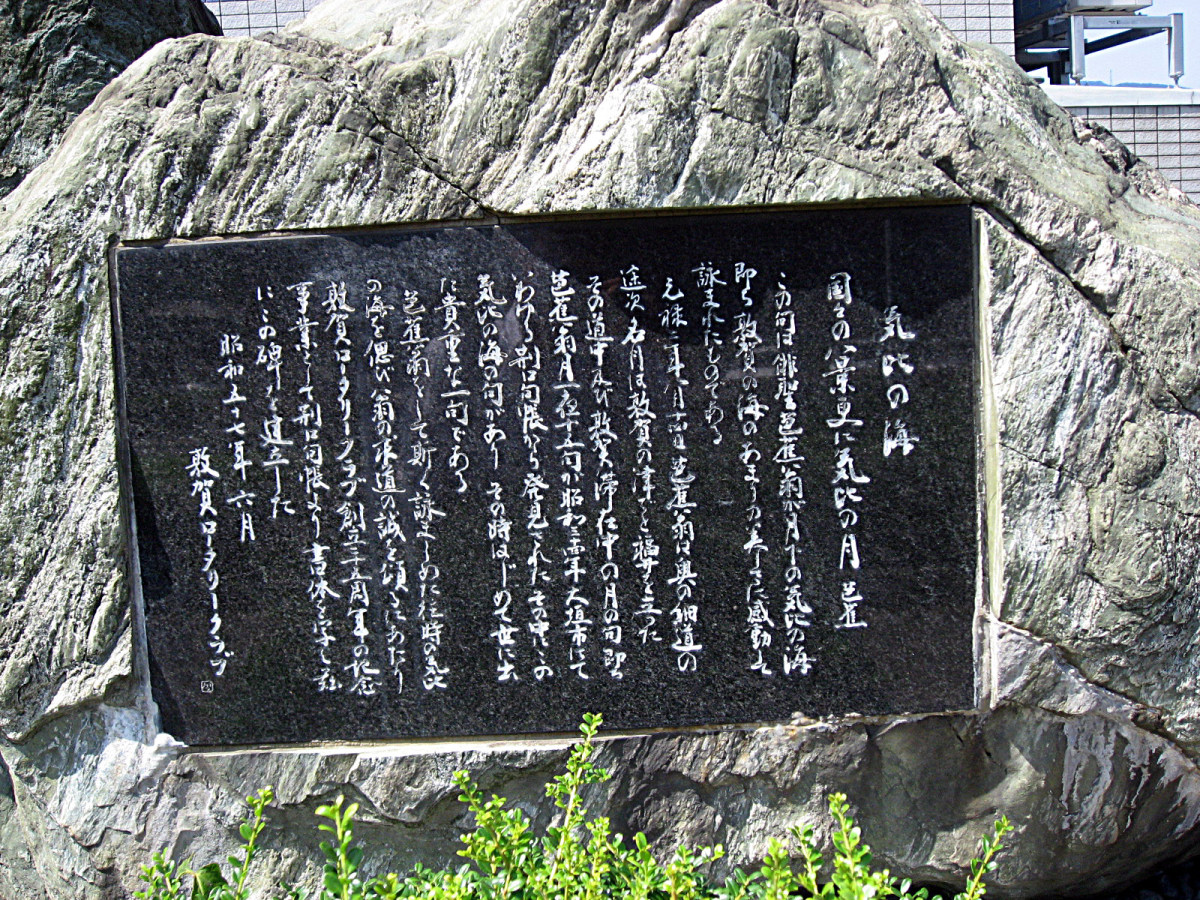 気比の海
国々の八景更に気比の月 芭蕉
この句は俳聖芭蕉翁が月下の気比の海
即ち敦賀の海のあまりの美しさに感動して
詠まれたものである
元禄二年八月十四日芭蕉翁は奥の細道の
途次名月は敦賀の津でと福井を立った
その道中及び敦賀滞在中の月の句 即ち
芭蕉翁月一夜十五句が昭和三十四年大垣市にて
いわゆる荊口句帳から発見された その中にこの
気比の海の句があり その時はじめて世に出
た貴重な一句である
芭蕉翁をして斯く詠ましめた往時の気比
の海を偲び翁の求道の誠を頌するにあたり
敦賀ロータリークラブ創立二十五周年の記念
事業として荊口句帳より書体を写し茲
にこの碑を建立した
昭和五十七年六月
敦賀ロータリークラブ